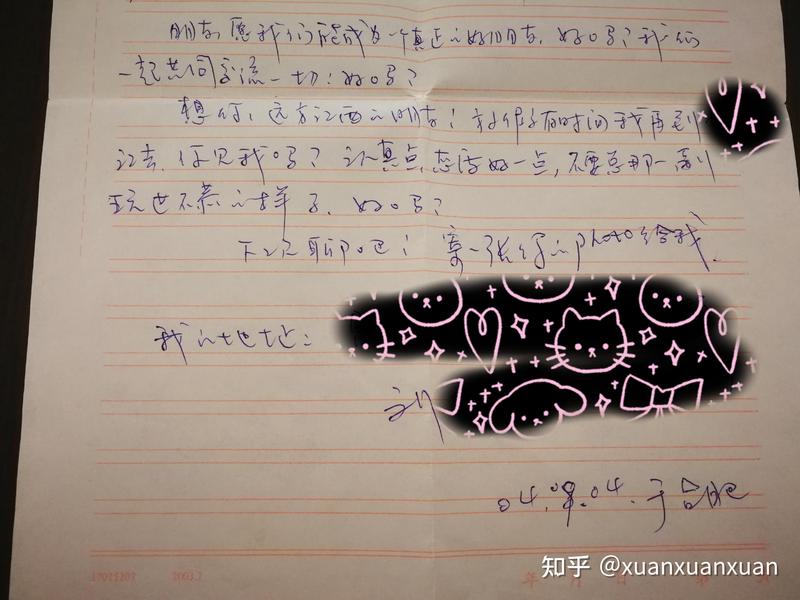 朋友，愿我们能成为一个真正的好朋友，好吗？我们
一起共同交流一切！好吗？
想你，远方江西的朋友！ 有时间我再到
江去，你见我吗？ 认真点，态度好一点，不要总那一副
玩世不恭的样子，好吗？
下次聊吧！ 寄一张你的photo给我．
我的地址：
刘
04．04．于合肥
17015207 2003.7
知乎 @xuanxuanxuan